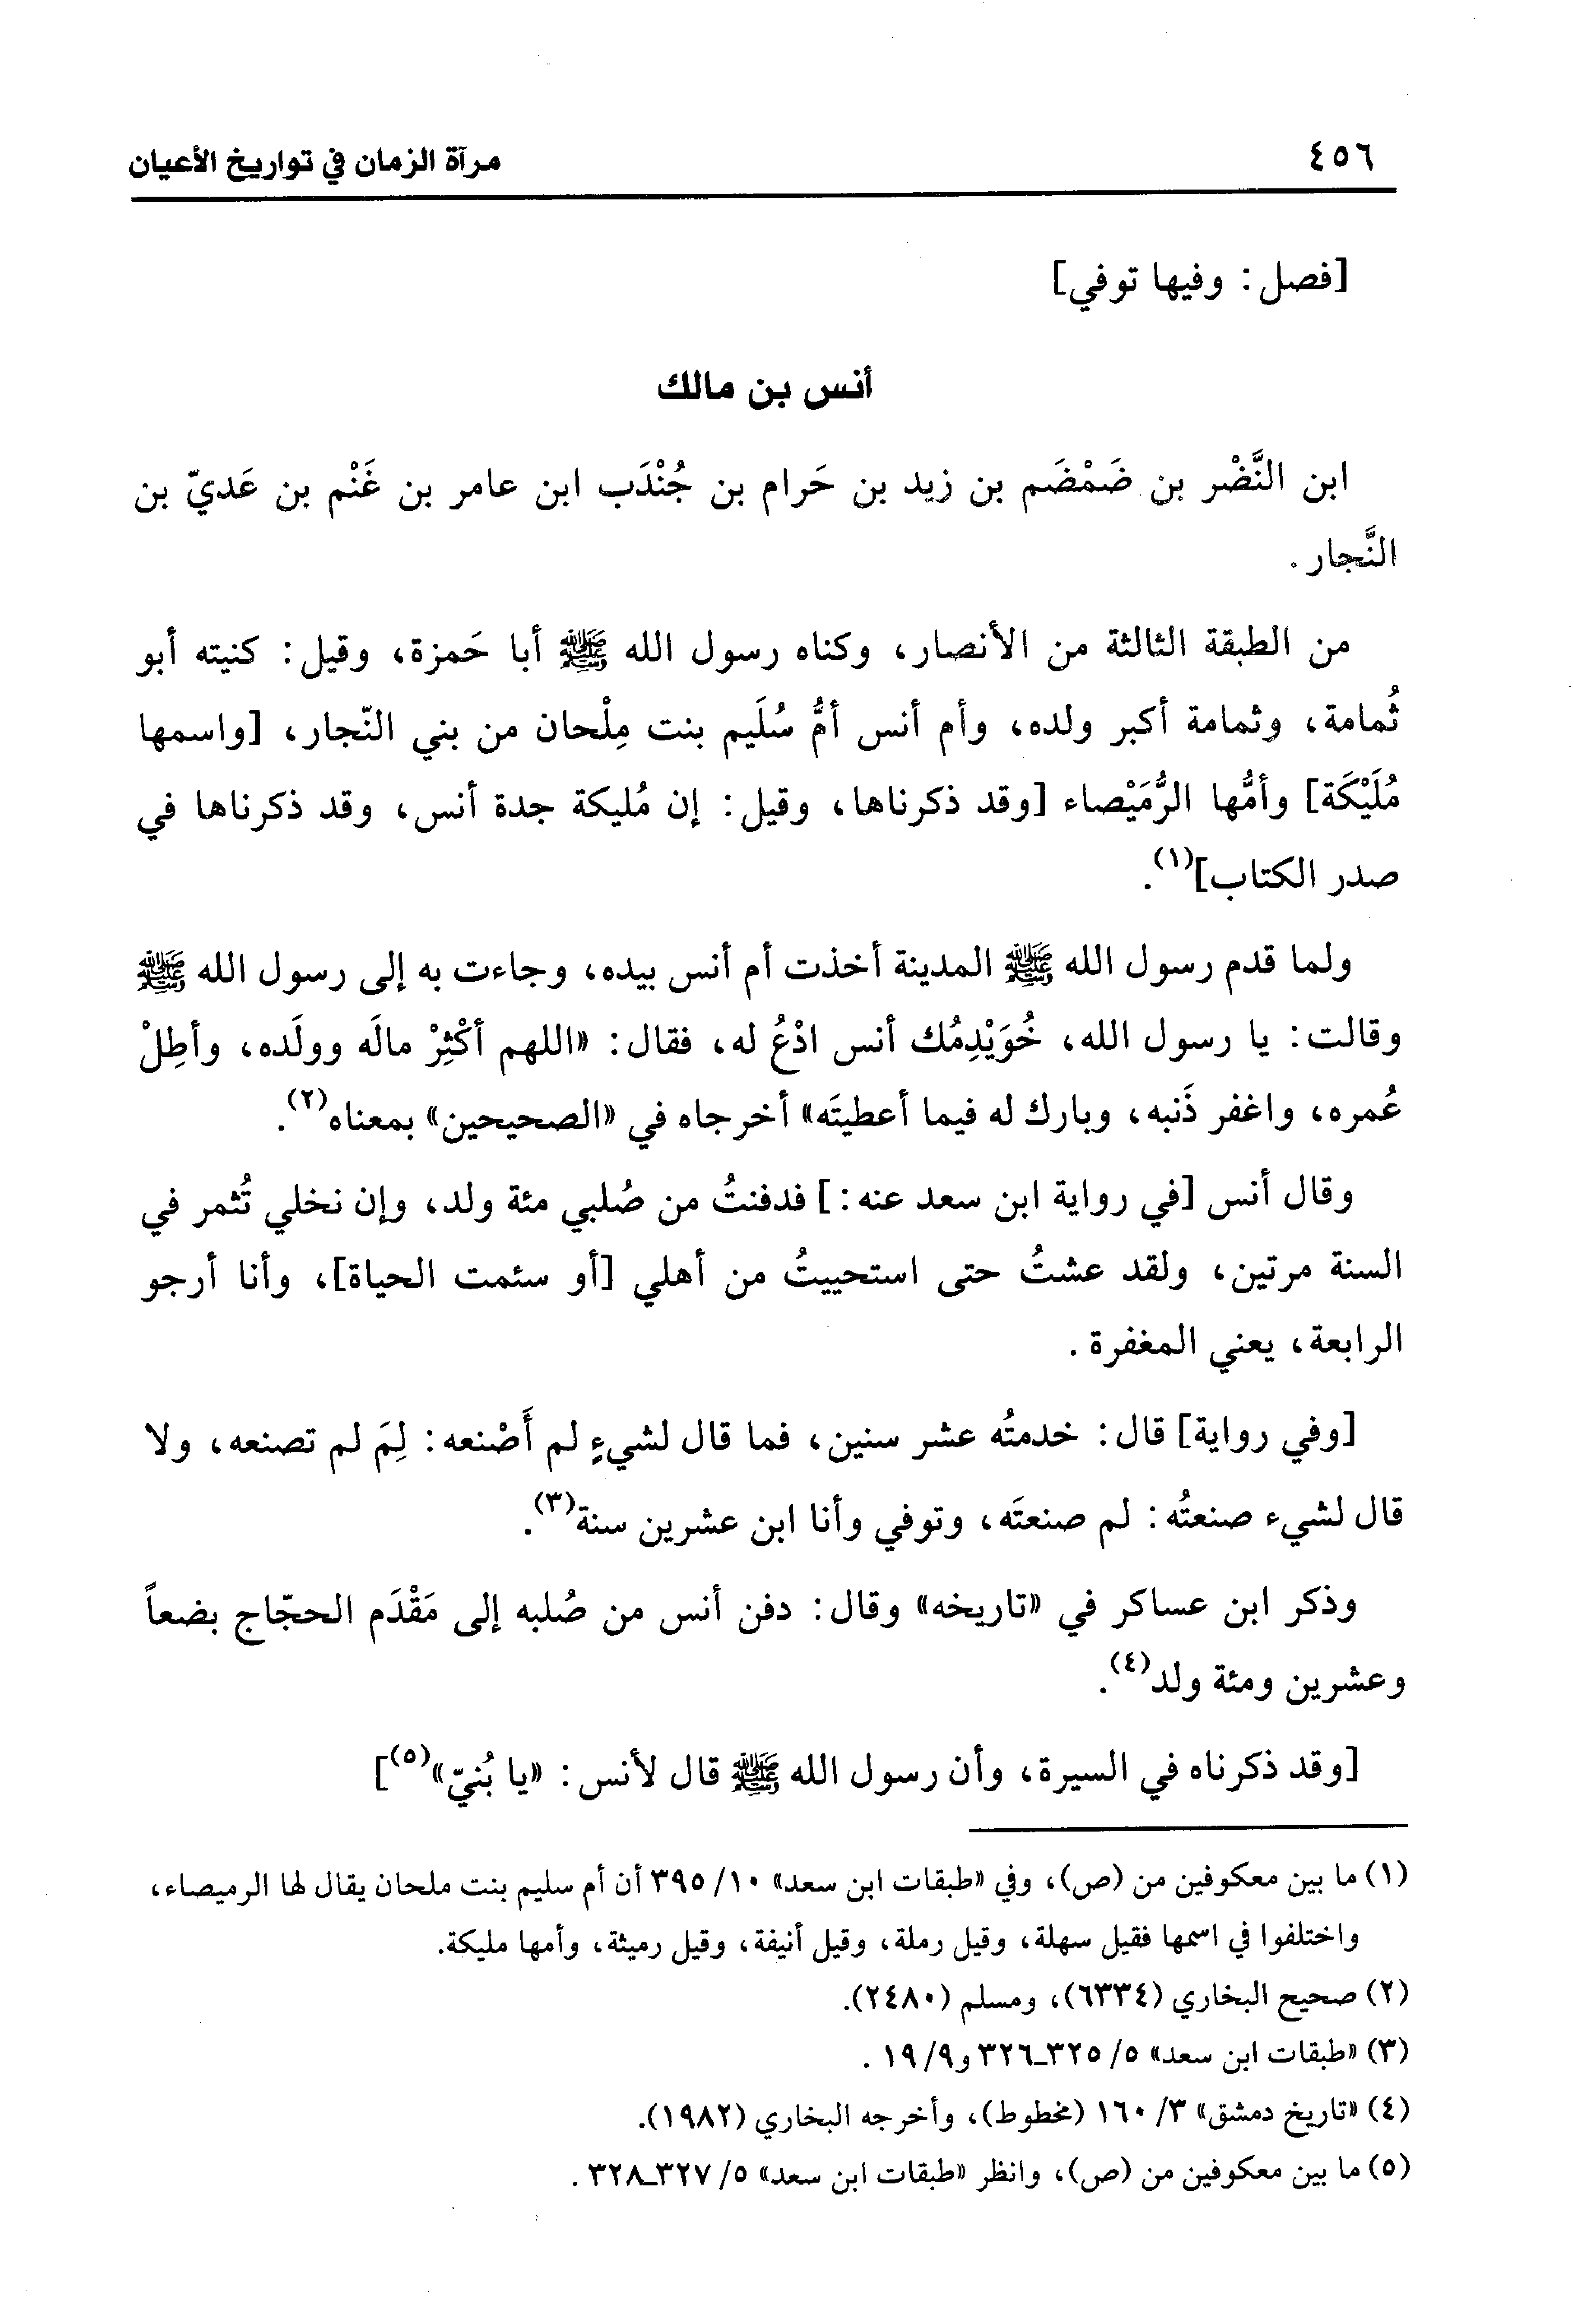 ٤٥٦
مرآة الزمان في تواريخ الأعيان
[فصل: وفيها توفي]
أنس بن مالك
ابن النَّضْر بن ضَمْضَم بن زيد بن حَرام بن جُنْدَب ابن عامر بن غَنْم بن عَديّ بن
النَّجار.
من الطبقة الثالثة من الأنصار، وكناه رسول الله ﷺ أبا حَمزة، وقيل: كنيته أبو
ثُمامة، وثمامة أكبر ولده، وأم أنس أمُّ سُلَيم بنت مِلْحان من بني النّجار، [واسمها
مُلَيْكَة] وأمُّها الرُّمَيْصاء [وقد ذكرناها، وقيل: إن مُليكة جدة أنس، وقد ذكرناها في
صدر الكتاب](١).
ولما قدم رسول الله ﷺ المدينة أخذت أم أنس بيده، وجاءت به إلى رسول الله ﷺ
وقالت: يا رسول الله، خُوَيْدِمُك أنس ادْعُ له، فقال: «اللهم أكْثِرْ مالَه وولَده، وأطِلْ
عُمره، واغفر ذَنبه، وبارك له فيما أعطيتَه» أخرجاه في «الصحيحين» بمعناه(٢).
وقال أنس [في رواية ابن سعد عنه:] فدفنتُ من صُلبي مئة ولد، وإن نخلي تُثمر في
السنة مرتين، ولقد عشتُ حتى استحييتُ من أهلي [أو سئمت الحياة]، وأنا أرجو
الرابعة، يعني المغفرة.
[وفي رواية] قال: خدمتُه عشر سنين، فما قال لشيءٍ لم أَصْنعه: لِمَ لم تصنعه، ولا
قال لشيء صنعتُه: لم صنعتَه، وتوفي وأنا ابن عشرين سنة(٣).
وذكر ابن عساكر في «تاريخه» وقال: دفن أنس من صُلبه إلى مَقْدَم الحجّاج بضعاً
وعشرين ومئة ولد(٤).
[وقد ذكرناه في السيرة، وأن رسول الله ﷺ قال لأنس: «يا بُنيّ»(٥)]
(١) ما بين معكوفين من (ص)، وفي «طبقات ابن سعد» ١٠/ ٣٩٥ أن أم سليم بنت ملحان يقال لها الرميصاء،
واختلفوا في اسمها فقيل سهلة، وقيل رملة، وقيل أنيفة، وقيل رميثة، وأمها مليكة.
(٢) صحيح البخاري (٦٣٣٤)، ومسلم (٢٤٨٠).
(٣) «طبقات ابن سعد» ٥/ ٣٢٥ـ٣٢٦ و٩/ ١٩.
(٤) «تاريخ دمشق» ٣/ ١٦٠ (مخطوط)، وأخرجه البخاري (١٩٨٢).
(٥) ما بين معكوفين من (ص)، وانظر «طبقات ابن سعد» ٥/ ٣٢٧ـ٣٢٨.